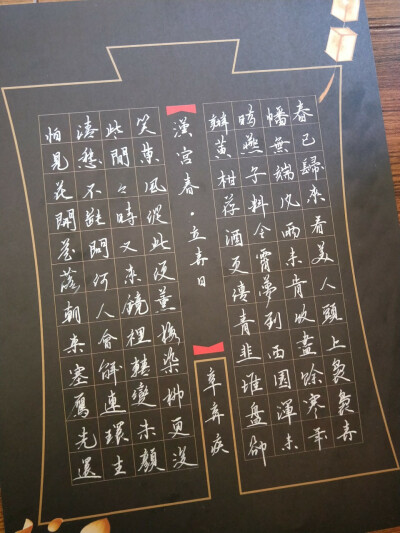 春已歸來看美人頭上裊裊春
幡無端風雨未肯收盡餘寒年
時燕子料今宵夢到西園渾未
辦黃柑荐酒更傳青韭堆盤卻
漢宮春·立春日
辛棄疾
笑東風從此便薰梅染柳更沒
些閒々時又來鏡裡轉變朱顏
清愁不斷問何人會解連環生
怕見花開花落朝來塞鴈先還